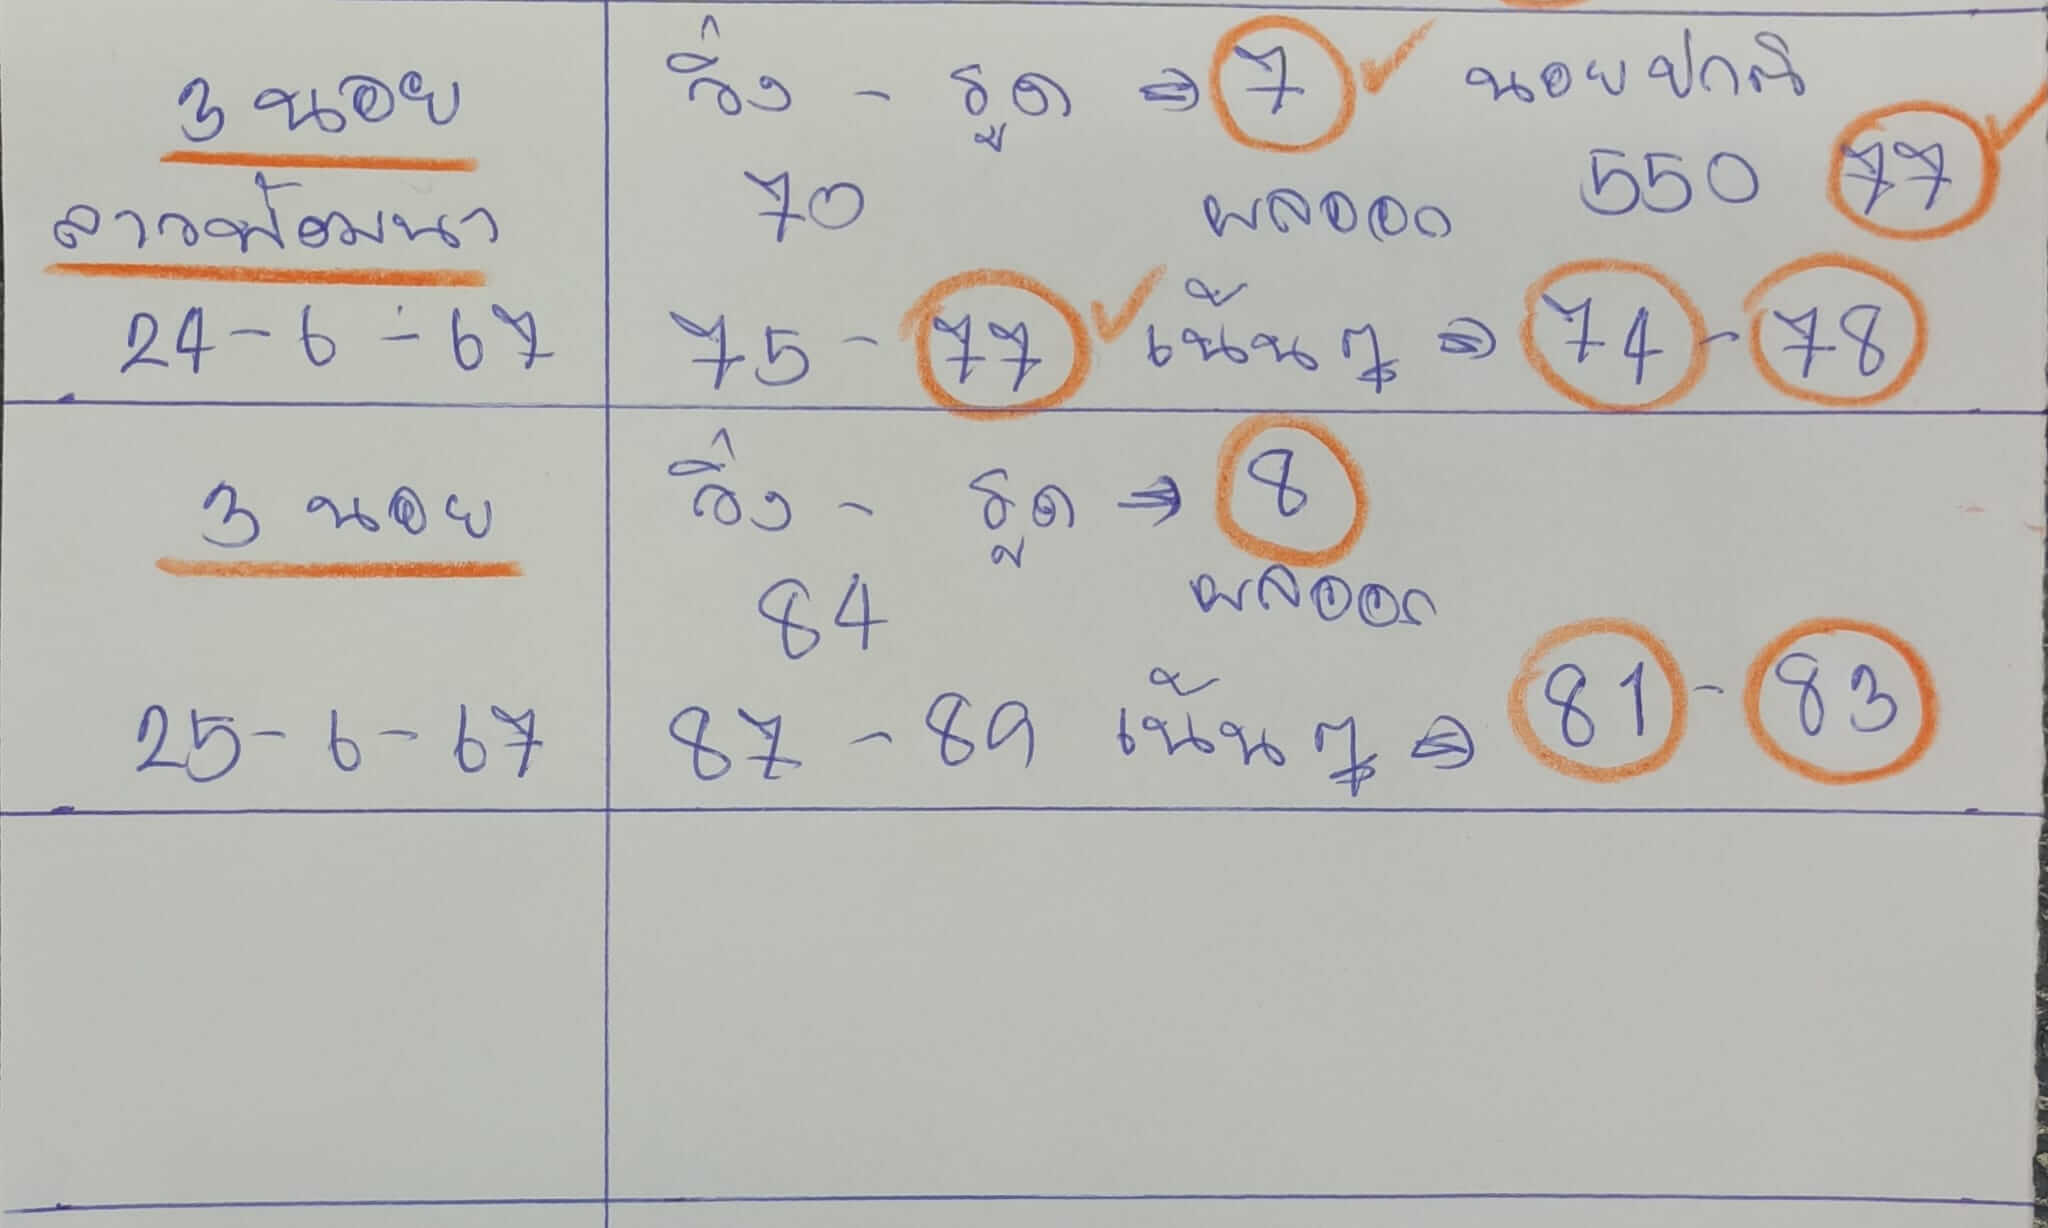 3 นอย
ลาวพัฒนา
24-6-67
วิ่ง - รูด ⇒ 7 ✓ นอยปกติ
70 ผลออก 550 77 ✓
75 - 77 ✓ เน้นๆ ⇒ 74 - 78
3 นอย
25-6-67
วิ่ง - รูด ⇒ 8
84 ผลออก
87 - 89 เน้นๆ ⇒ 81 - 83